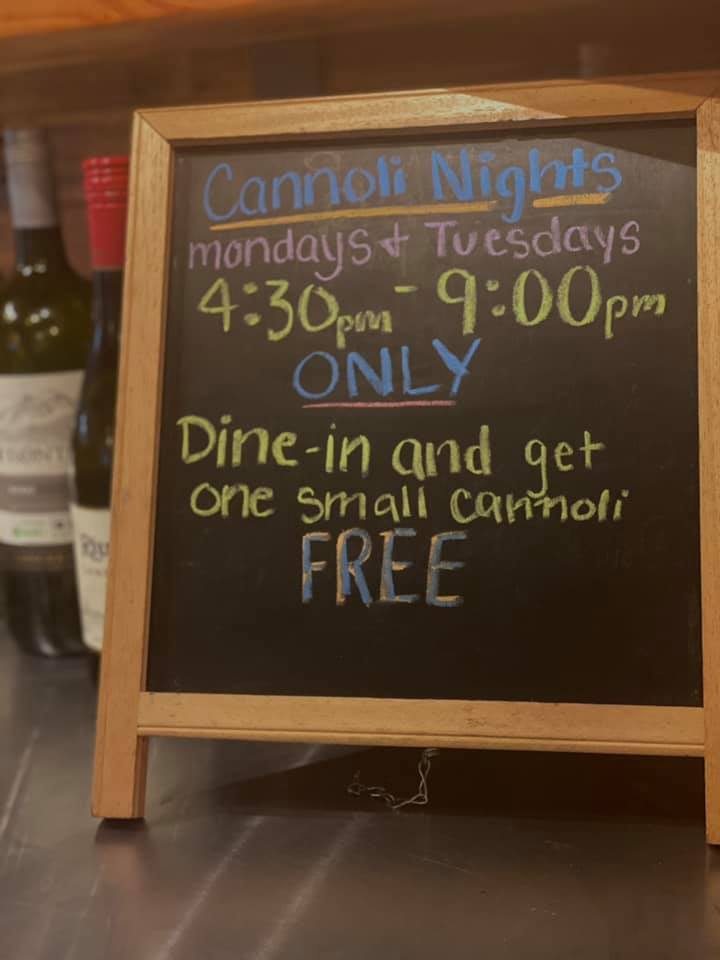 Cannoli Nights
mondays + Tuesdays
4:30pm - 9:00pm
ONLY
Dine-in and get
one small cannoli
FREE